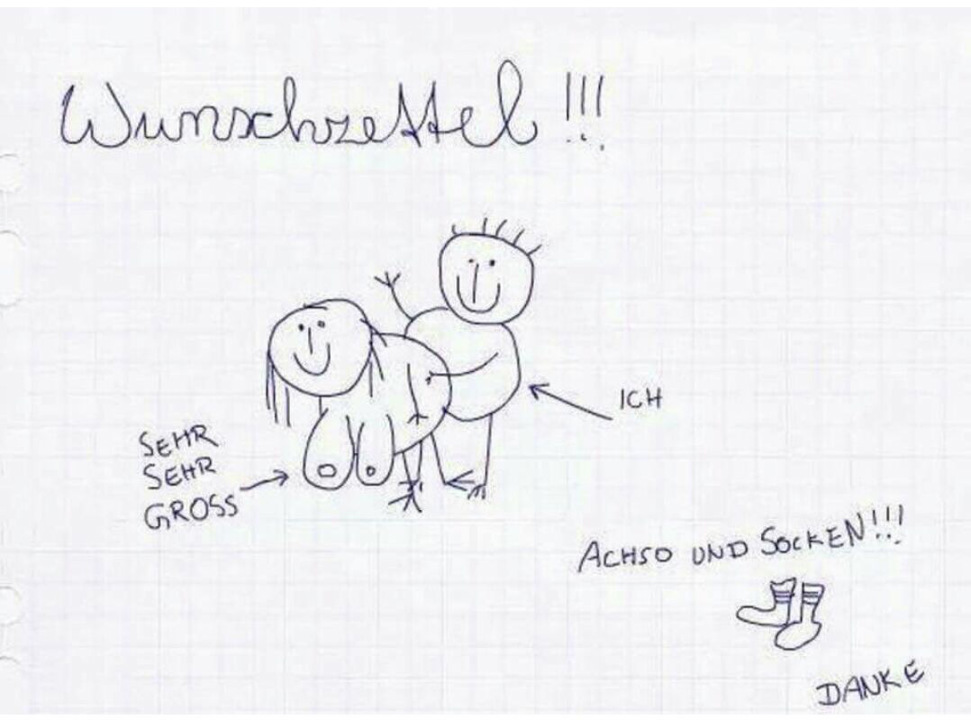 Wunschzettel!!!
SEHR
SEHR
GROSS
ICH
ACHSO UND SOCKEN!!!
DANKE